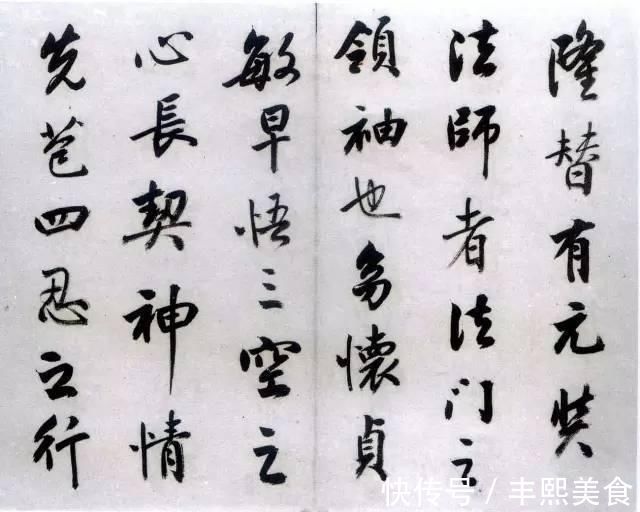 隆替有元奘
法師者法门之
領袖也㓜懷貞
敏早悟三空之
心長契神情
先苞四忍之行
快传号／丰熙美食